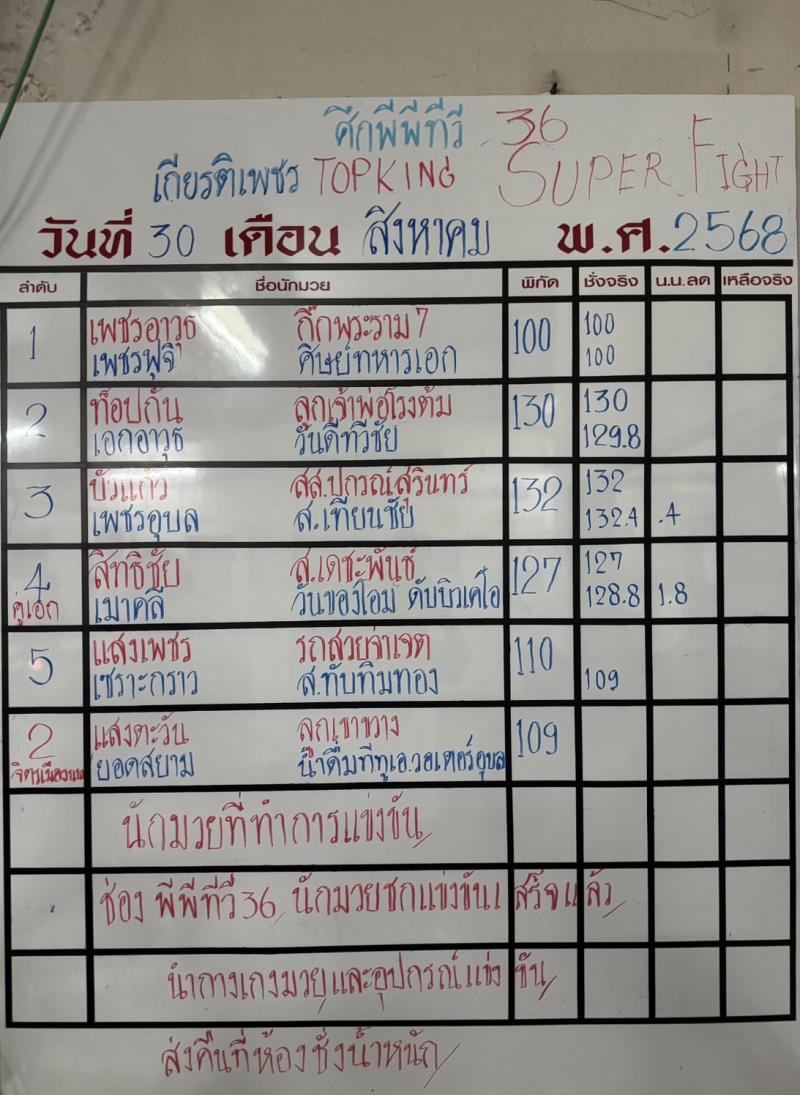 ศึกพีพีทีวี 36
เกียรติเพชร TOPKING SUPER FIGHT
วันที่ 30 เดือน สิงหาคม พ.ศ. 2568
ลำดับ ชื่อนักมวย พิกัด ชั่งจริง น.น.ลด เหลือจริง
1 เพชรอาวุธ กิ๊กพระราม 7 100 100
เพชรฟูจิ ศิษย์ทหารเอก 100
2 ท็อปกัน ลูกเจ้าพ่อโรงต้ม 130 130
เอกอาวุธ วันดีทวีชัย 129.8
3 บัวแก้ว สส.ปกรณ์สุรินทร์ 132 132
เพชรอุบล ส.เทียนชัย 132.4 .4
4 สิทธิชัย ส.เดชะพันธ์ 127 127
คู่เอก เมาคลี วันของโอม ดับบิวเคโอ 128.8 1.8
5 แสงเพชร รถสวยจ่าเจต 110
เซราะกราว ส.ทับทิมทอง 109
2 แสงตะวัน ลูกเขาขวาง 109
ยอดสยาม น้ำดื่มทีทูเอ.วอเตอร์อุบล
นักมวยที่ทำการแข่งขัน
ช่อง พีพีทีวี 36 นักมวยชกแข่งขันเสร็จแล้ว
นำกางเกงมวยและอุปกรณ์แข่งขัน
ส่งคืนที่ห้องชั่งน้ำหนัก